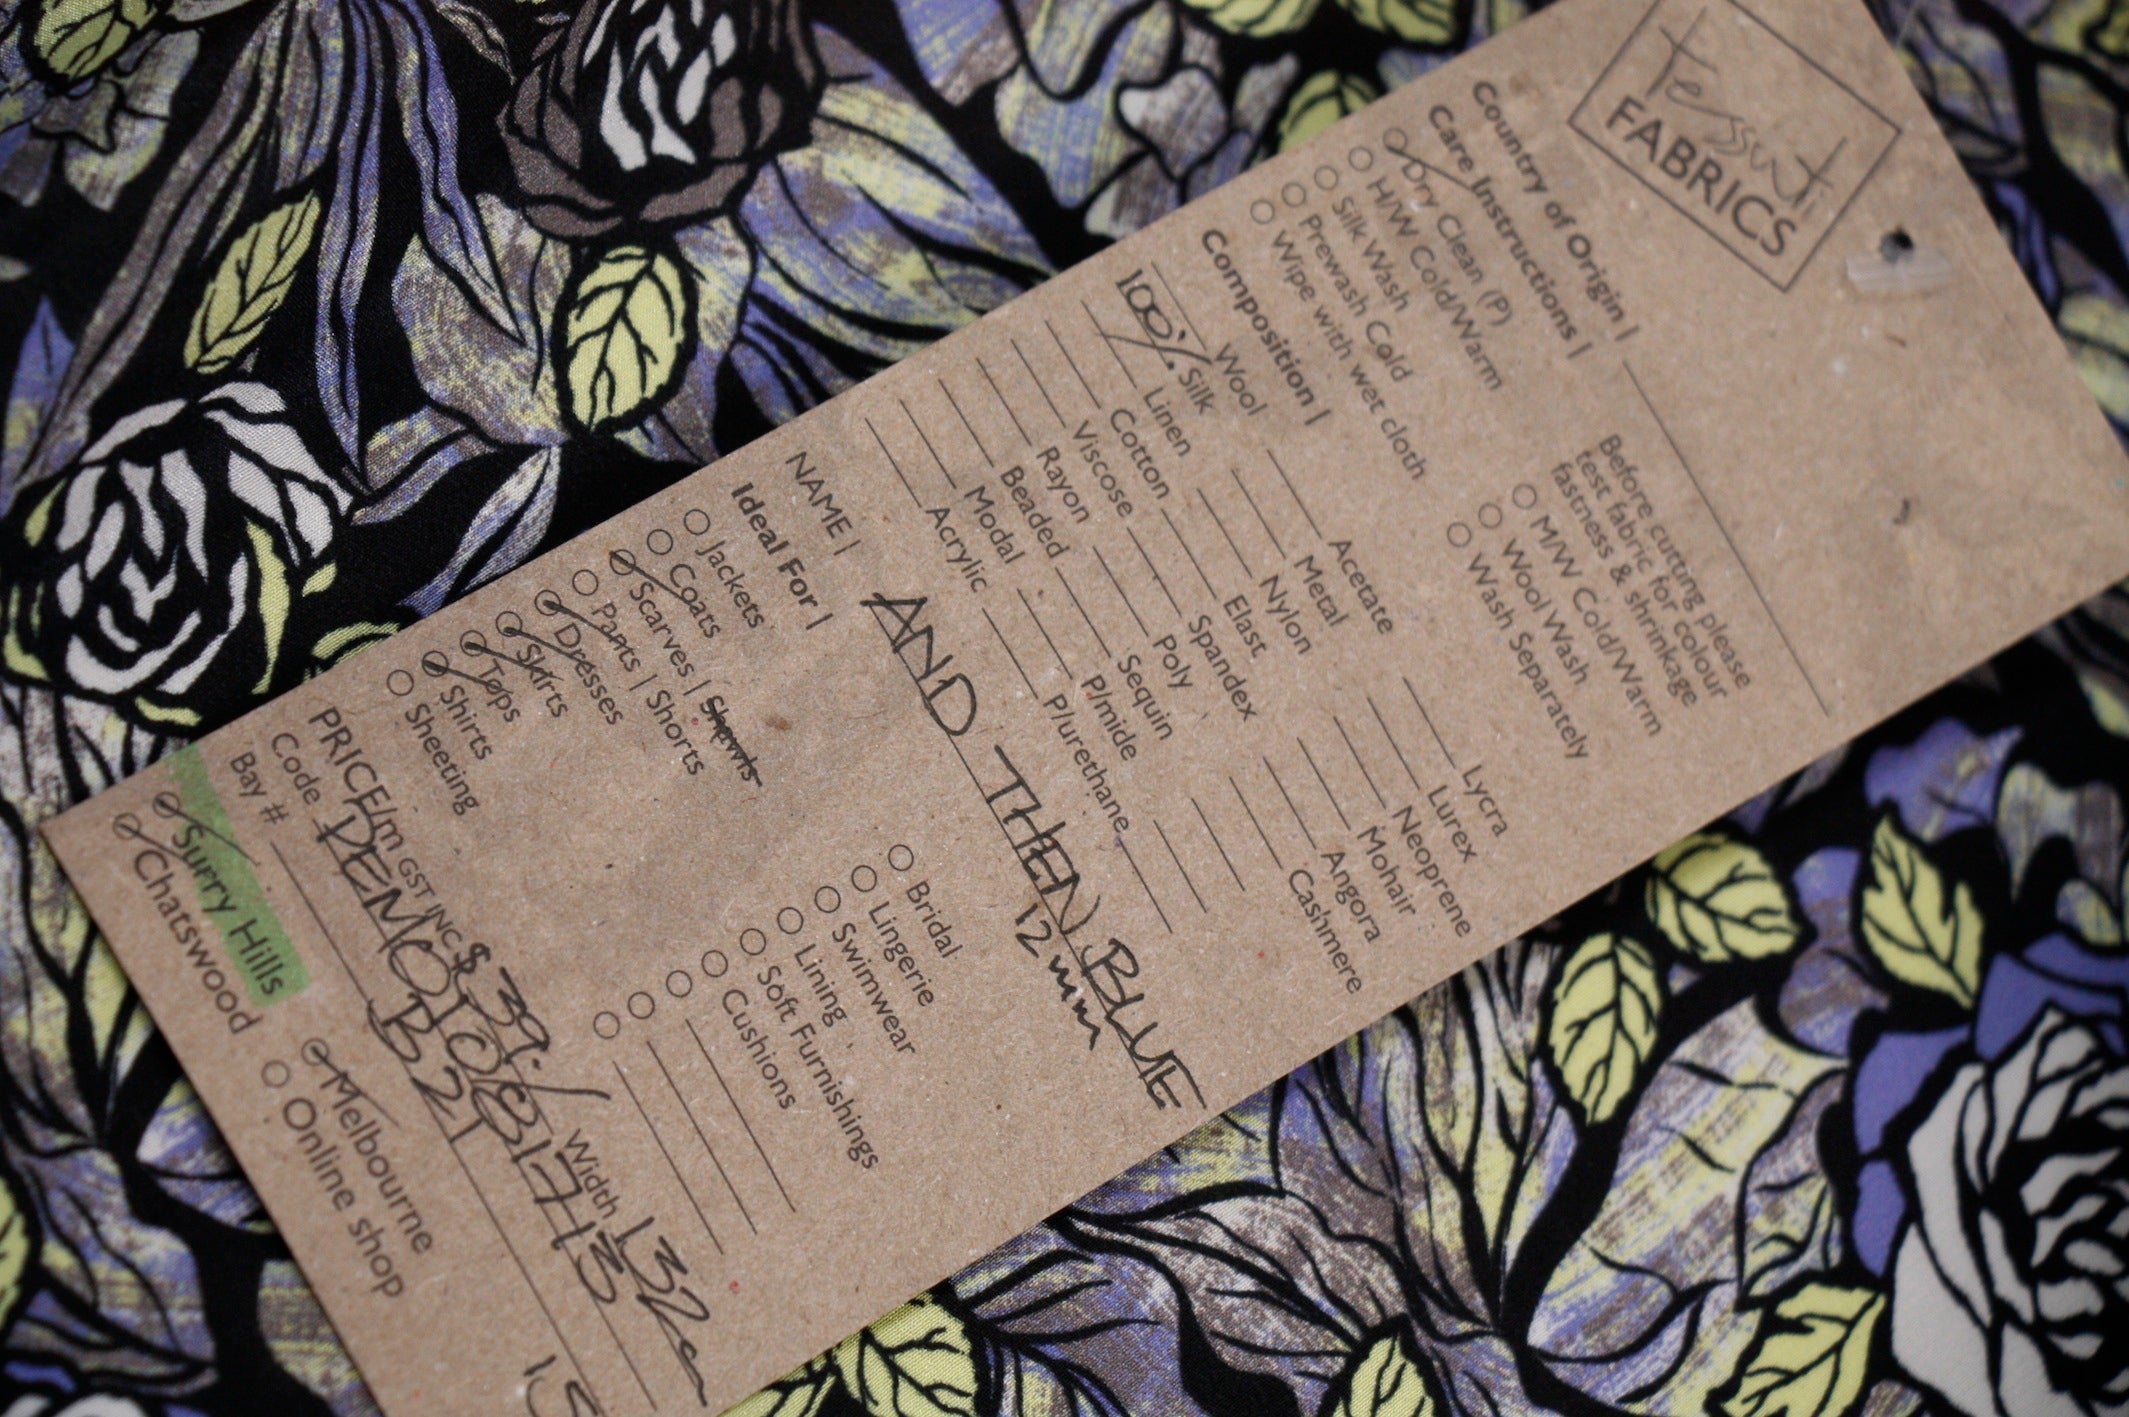 Tessuti
FABRICS
Country of Origin |
Care Instructions |
Dry Clean (P)
H/W Cold/Warm
Silk Wash
Prewash Cold
Wipe with wet cloth
Before cutting please
test fabric for colour
fastness & shrinkage
M/W Cold/Warm
Wool Wash
Wash Separately
Composition |
Wool
100% Silk
Linen
Cotton
Viscose
Rayon
Beaded
Modal
Acrylic
Acetate
Metal
Nylon
Elast
Spandex
Poly
Sequin
P/mide
P/urethane
Lycra
Lurex
Neoprene
Mohair
Angora
Cashmere
NAME | AND THEN BLUE
12mm
Ideal For |
Jackets
Coats
Scarves | Shawls
Pants | Shorts
Dresses
Skirts
Tops
Shirts
Sheeting
Bridal
Lingerie
Swimwear
Lining
Soft Furnishings
Cushions
PRICE/m GST INC $39./ Width 132cm
Code
Bay # B21
Surry Hills
Chatswood
Melbourne
Online shop